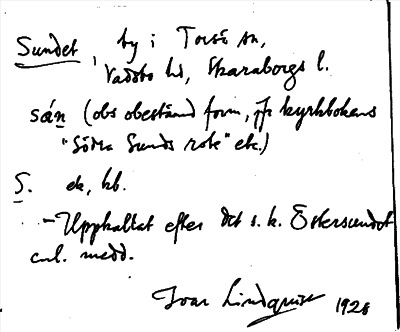 Sundet, by i Torsö sn,
Vadsbo hd, Skaraborgs l.
sún (obs obestämd form, jfr kyrkbokens
"Södra Sunds rote" etc.)
S. ek, kb.
- Upphallat efter det s. k. Östersundet
enl. medd.
Ivar Lindquist 1928